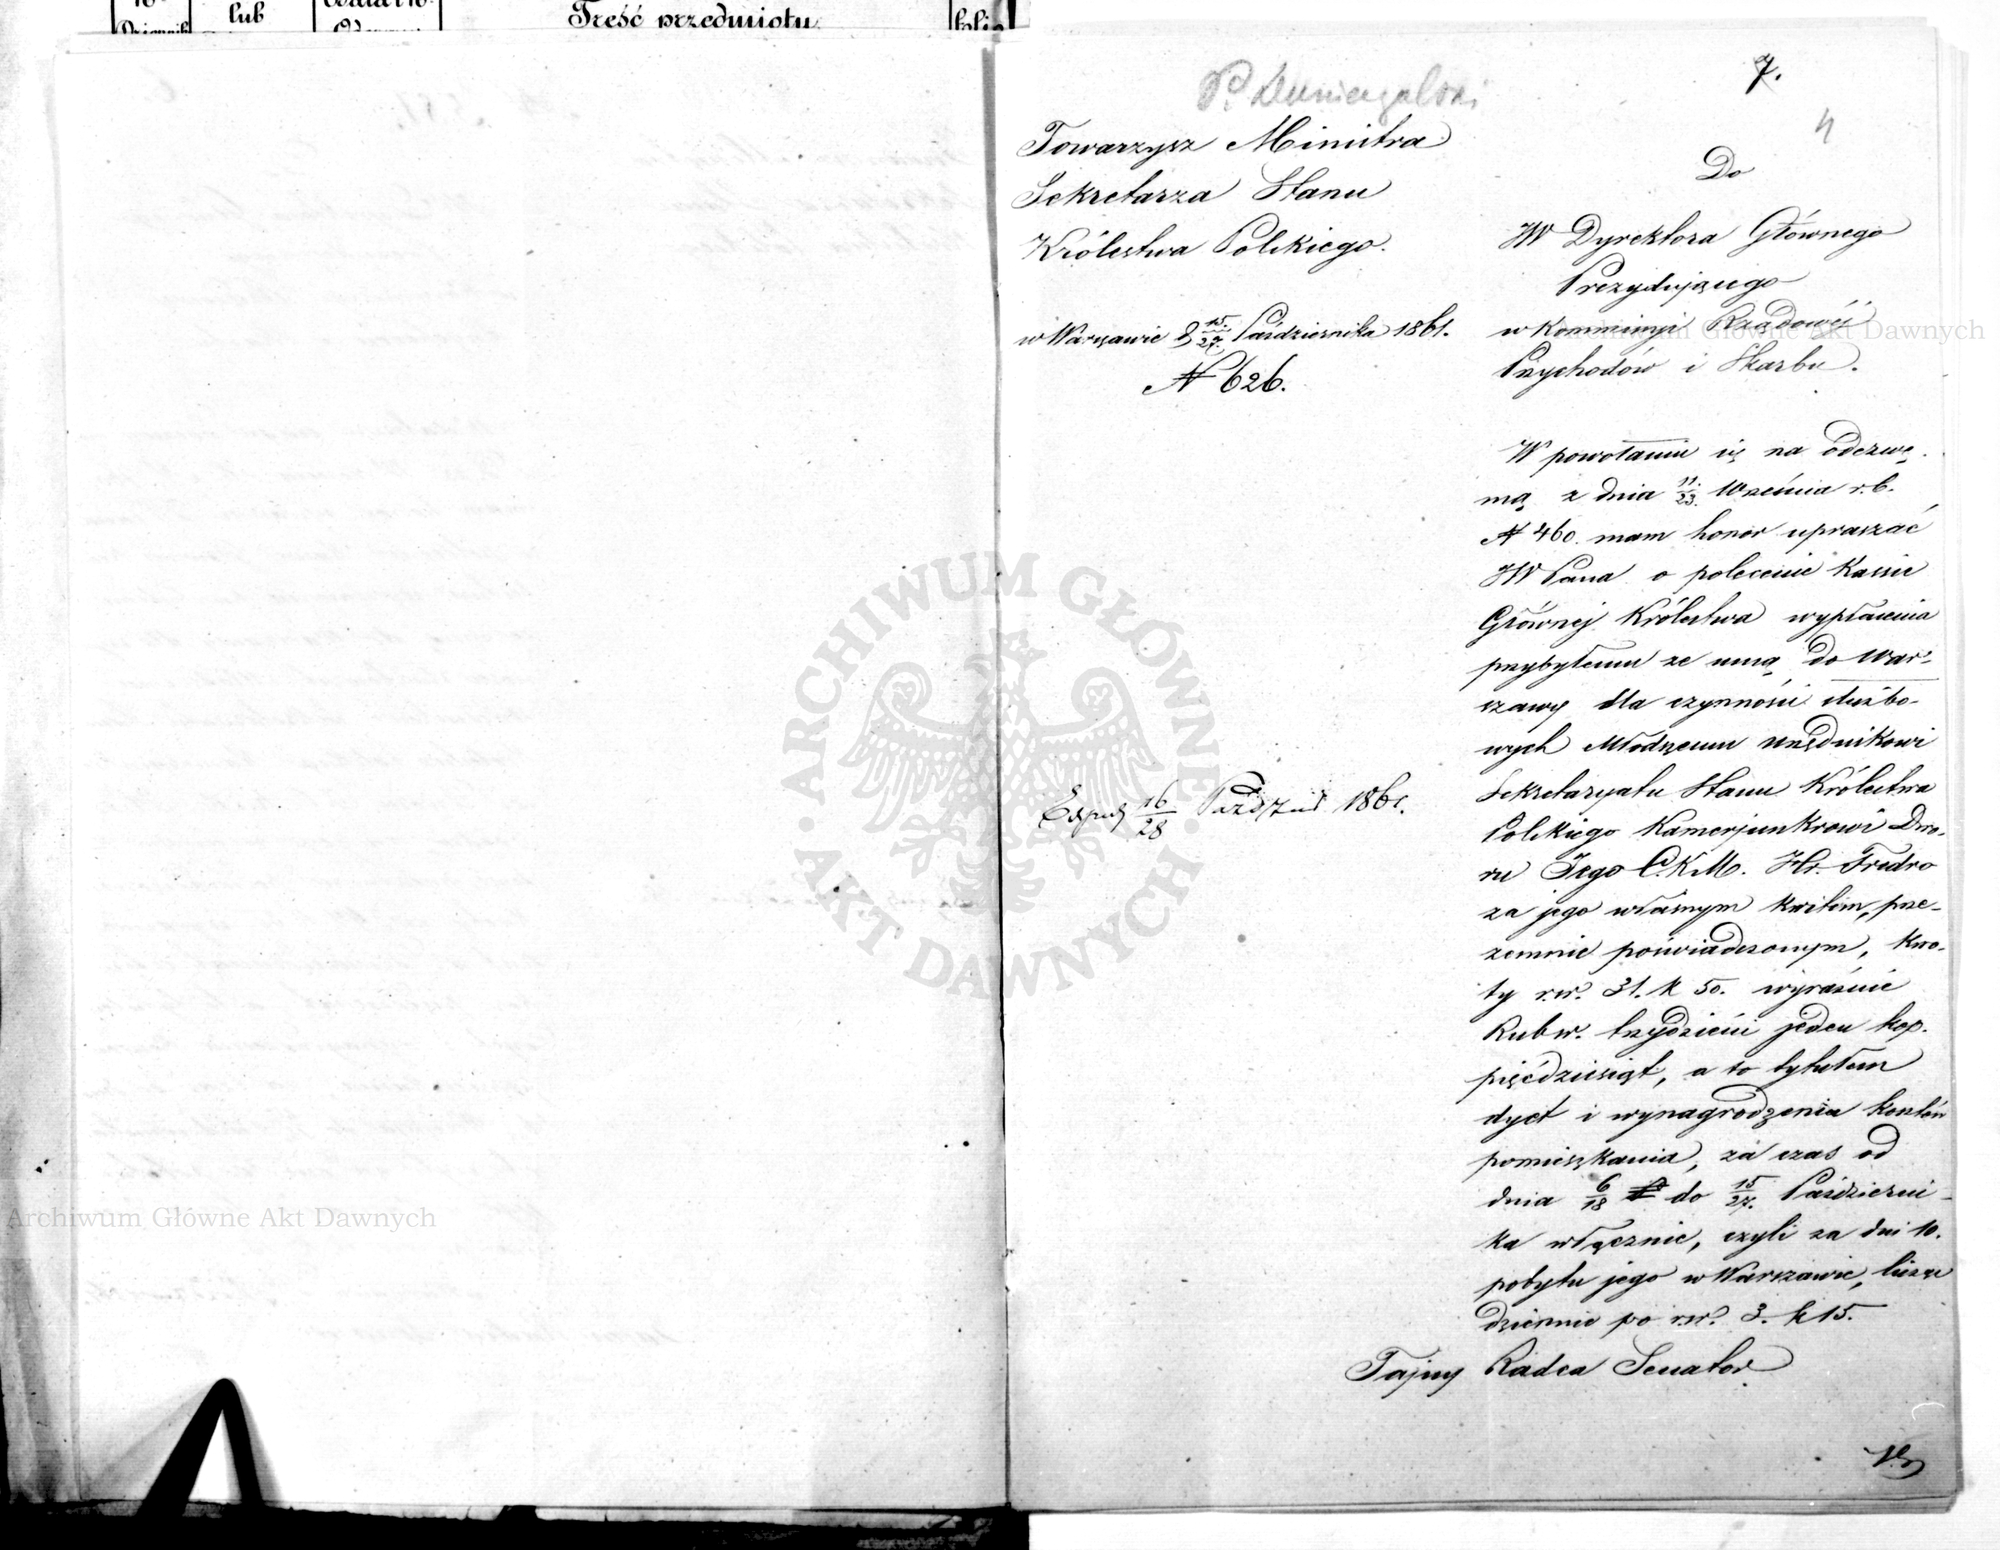 lub
Treść przedmiotu
folio
7.
4
Towarzysz Ministra
Sekretarza Stanu
Królestwa Polskiego.
w Warszawie d 15/27 Października 1861.
N 626.
Do
JW Dyrektora Głównego
Prezydującego
w Kommissyi Rządowéj
Przychodów i Skarbu.
W powołaniu się na odezwę
mą z dnia 11/23 Września r.b.
N 460. mam honor upraszać
JW Pana o polecenie Kassie
Głównej Królestwa wypłacenia
przybyłemu ze mną do War-
szawy dla czynności służbo-
wych Młodszemu urzędnikowi
Sekretaryatu Stanu Królestwa
Polskiego Kamerjunkrowi Dwo-
ru Jego C.K.M. Hr. Fredro
za jego własnym kwitem, prze-
zemnie poświadczonym, kwo-
ty rsr. 31. k 50. wyraźnie
Rubsr. trzydzieści jeden kop.
pięćdziesiąt, a to tytułem
dyet i wynagrodzenia kosztów
pomieszkania, za czas od
dnia 6/18 do 15/27 Październi-
ka włącznie, czyli za dni 10.
pobytu jego w Warszawie, licząc
dziennie po rsr. 3. k 15.
Tajny Radca Senator
16/28 1861.
ARCHIWUM GŁÓWNE AKT DAWNYCH
Archiwum Główne Akt Dawnych
Archiwum Główne Akt Dawnych